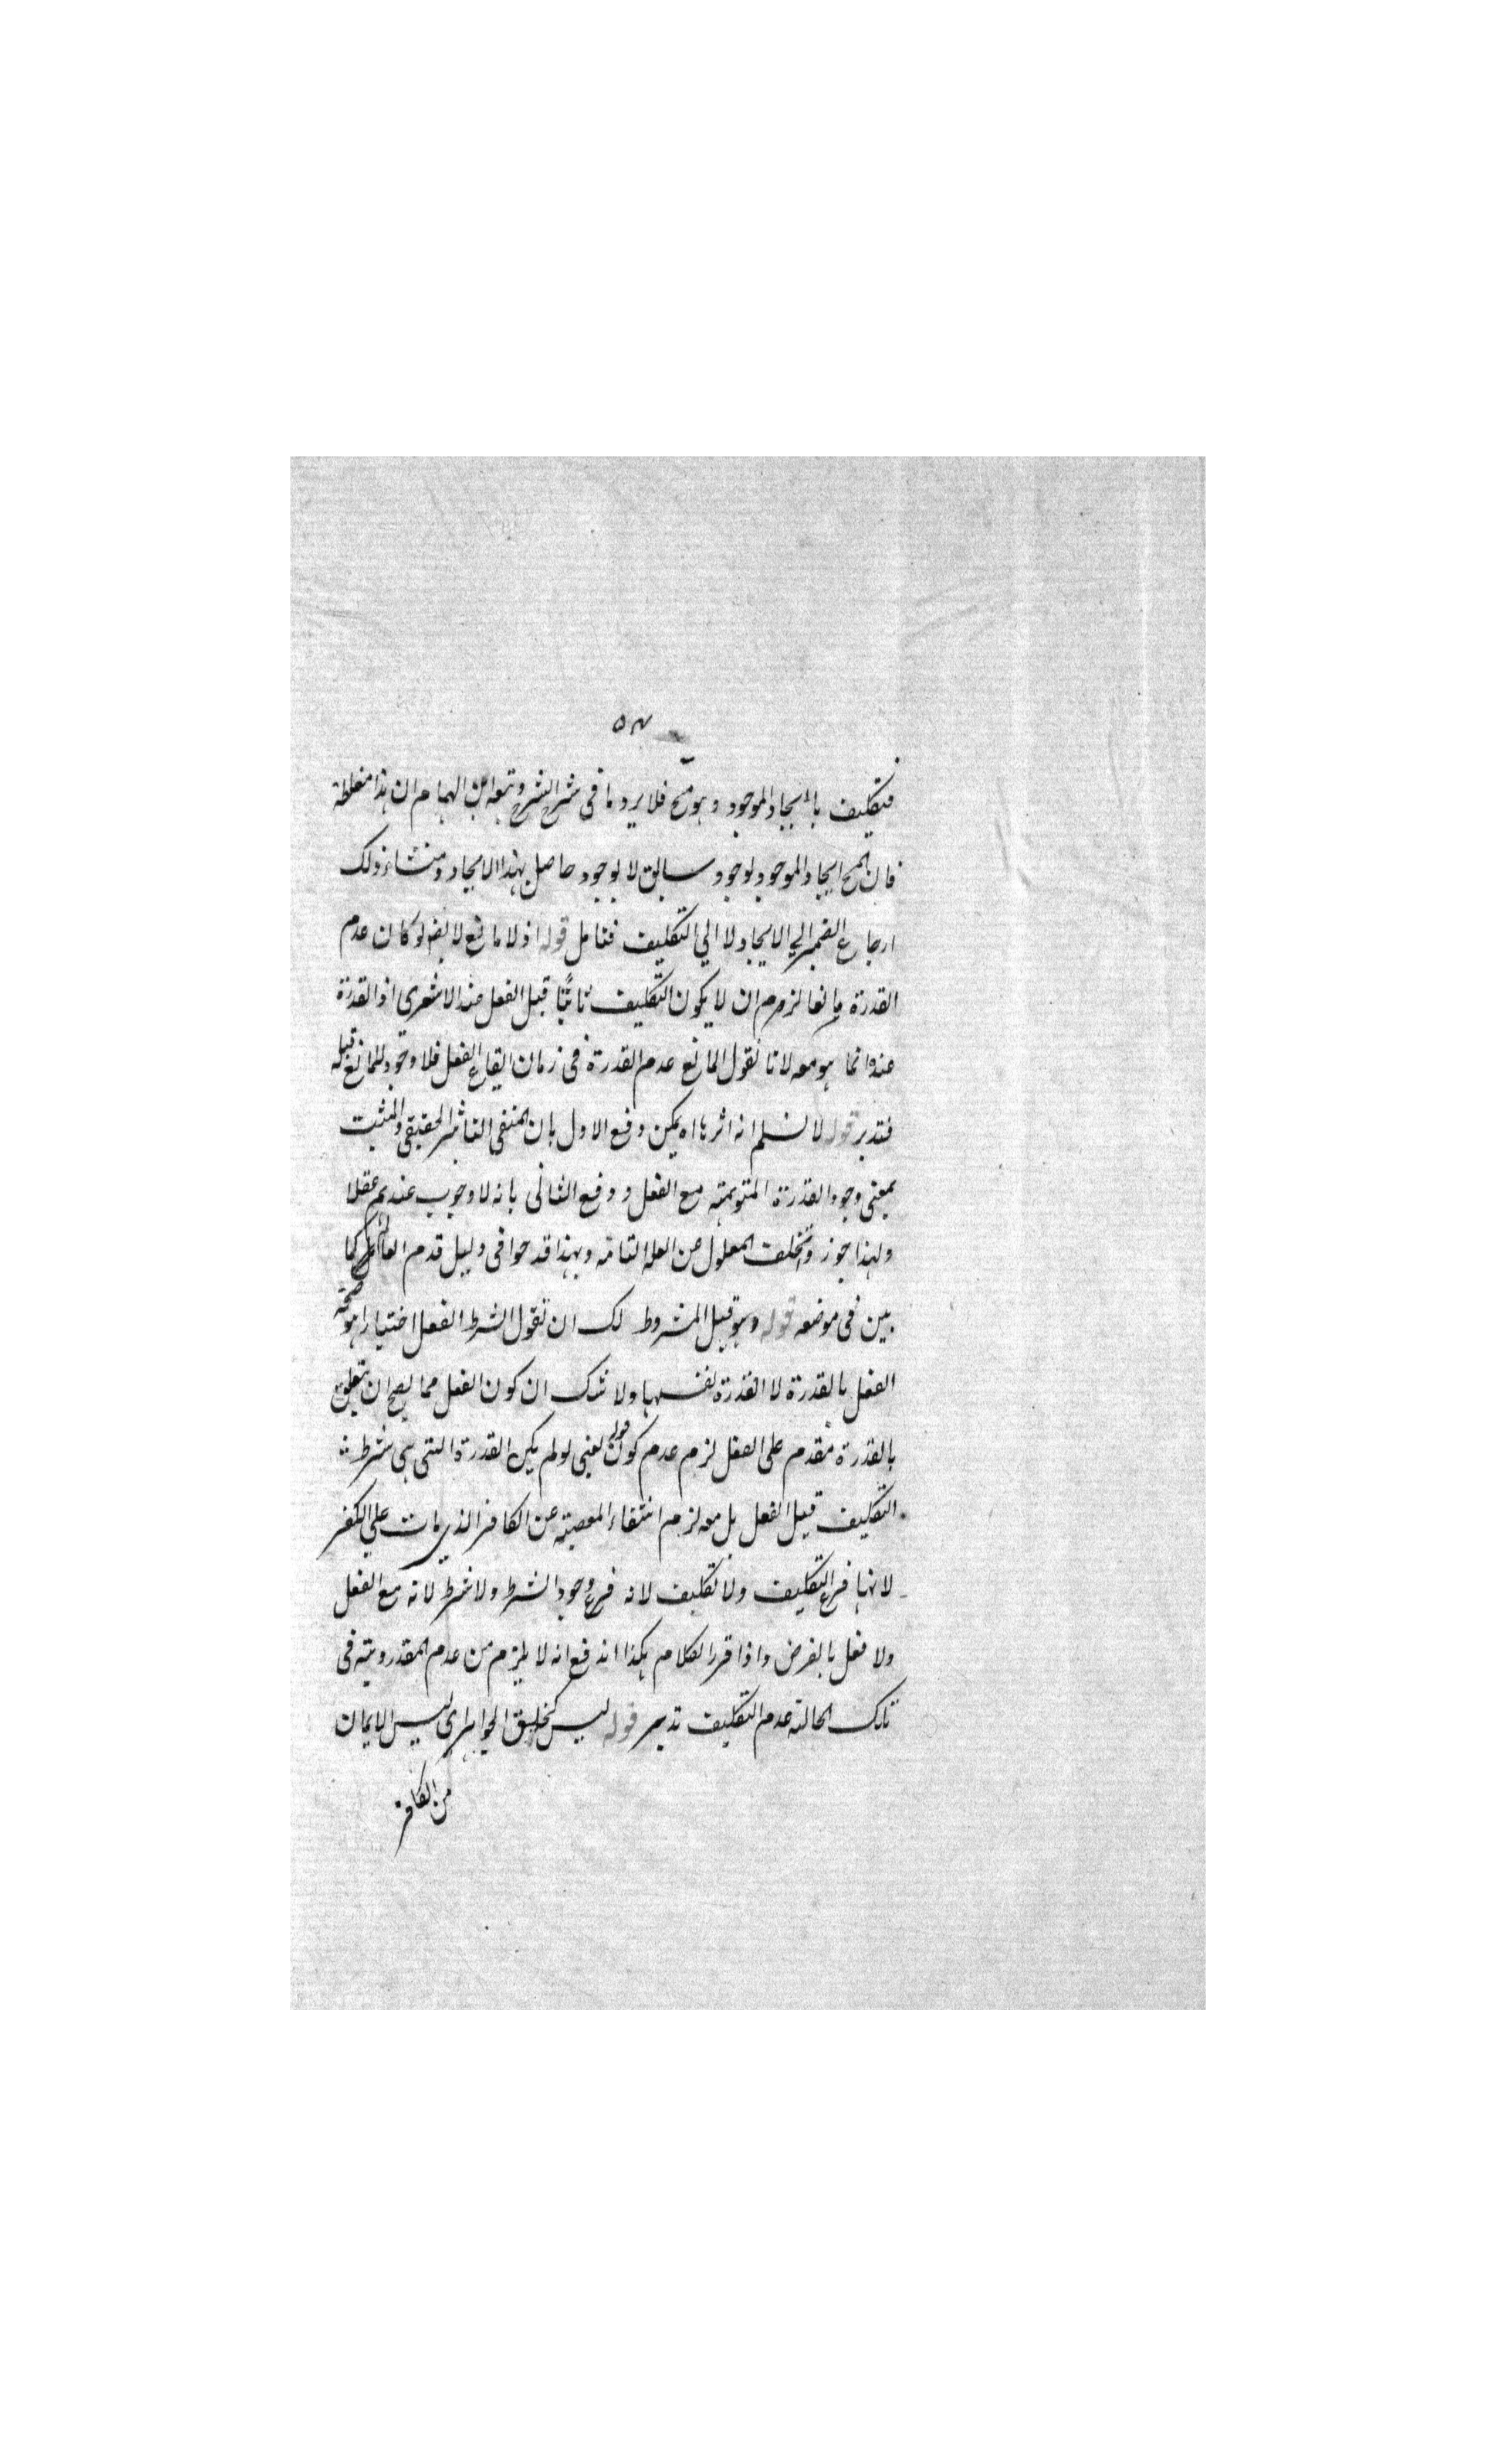 ٥٧
فتكليف بالايجاد الموجود وهو مح فلا يرد ما في شرح الشرح وتبعه ابن الهمام ان هذا مغلطة
فان المح ايجاد الموجود بوجود سابق لا بوجود حاصل بهذا الايجاد ومنشاء ذلك
ارجاع الضمير الى الايجاد لا الي التكليف فتامل قوله اذ لا مانع لا يقم لو كان عدم
القدرة مانعا لزم ان لا يكون التكليف ثابتًا قبل الفعل عند الاشعرى اذ القدرة
عنده انما هو معه لانا نقول المانع عدم القدرة في زمان ايقاع الفعل فلا وجود للمانع قبله
فتدبر قوله لا نسلم انه اثرها اه يمكن دفع الاول بان المنفي التاثير الحقيقي والمثبت
بمعنى وجود القدرة المتوهمة مع الفعل ودفع الثاني بانه لا وجوب عندهم عقلا
ولهذا جوزوا تخلف المعلول عن العلة التامة وبهذا قدحوا في دليل قدم العالم كما
بين في موضعه قوله وهو قبل المشروط لك ان تقول الشرط الفعل اختيارا هو صحة
الفعل بالقدرة لا القدرة نفسها ولا شك ان كون الفعل مما يصح ان يتعلق
بالقدرة مقدم على الفعل لزم عدم كون قوله يعني لو لم يكن القدرة التي هي شرط
التكليف قبل الفعل بل معه لزم انتفاء المعصية عن الكافر الذي مات علي الكفر
لانها فرع التكليف ولا تكليف لانه فرع وجود الشرط ولا شرط لانه مع الفعل
ولا فعل بالفرض واذا قرر الكلام هكذا اندفع انه لا يلزم من عدم المقدورية في
تلك الحالة عدم التكليف تدبر قوله ليس كخلق الجواهر اى ليس الايمان
من الكافر